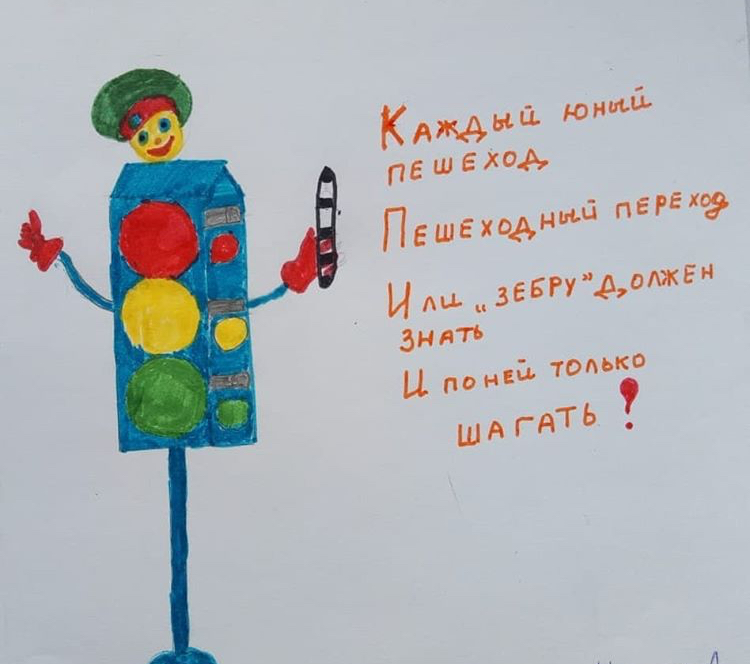 Каждый юный
пешеход
Пешеходный переход
Или „зебру” должен
знать
И по ней только
шагать!